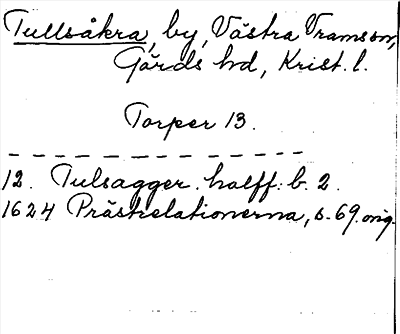 Tullsåkra, by, Västra Vramsm,
Gärds hd, Krist. l.
Torper 13.
12. Tulsagger. halff: b. 2.
1624 Prästrelationerna, s. 69. orig.